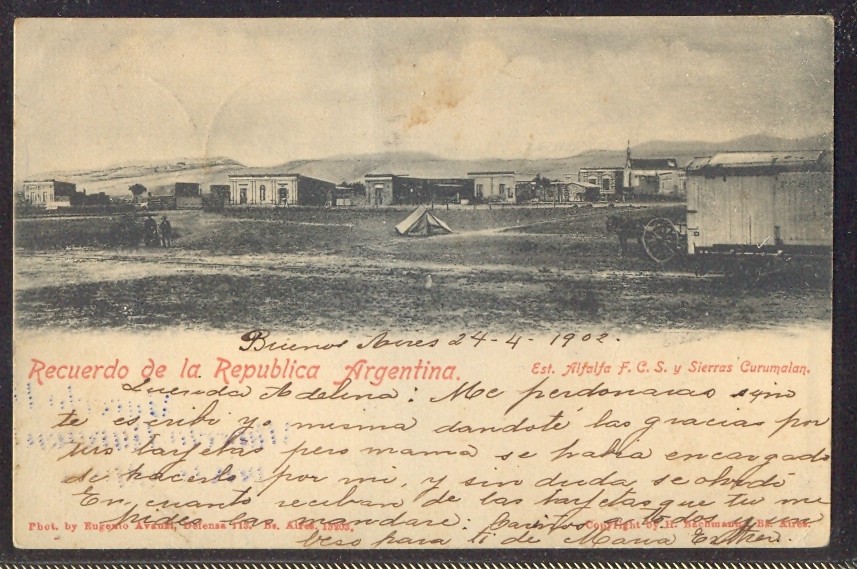 Buenos Aires 24-4-1902.
Recuerdo de la Republica Argentina.
Est. Alfalfa F. C. S. y Sierras Curumalan.
Querida Adelina: Me perdonaras sino
te escribi yo misma dandoté las gracias por
tus tarjetas pero mamá se habia encargado
de hacerlo por mi, y sin duda, se olvidó
En cuanto reciban de las tarjetas que tu me
pides las mandaré. Cariños todos y un
beso para ti de Maria Esther.
Phot. by Eugenio Avanzi, Defensa 113. Bs. Aires.
Copyright by H. Bachmann, Bs. Aires.